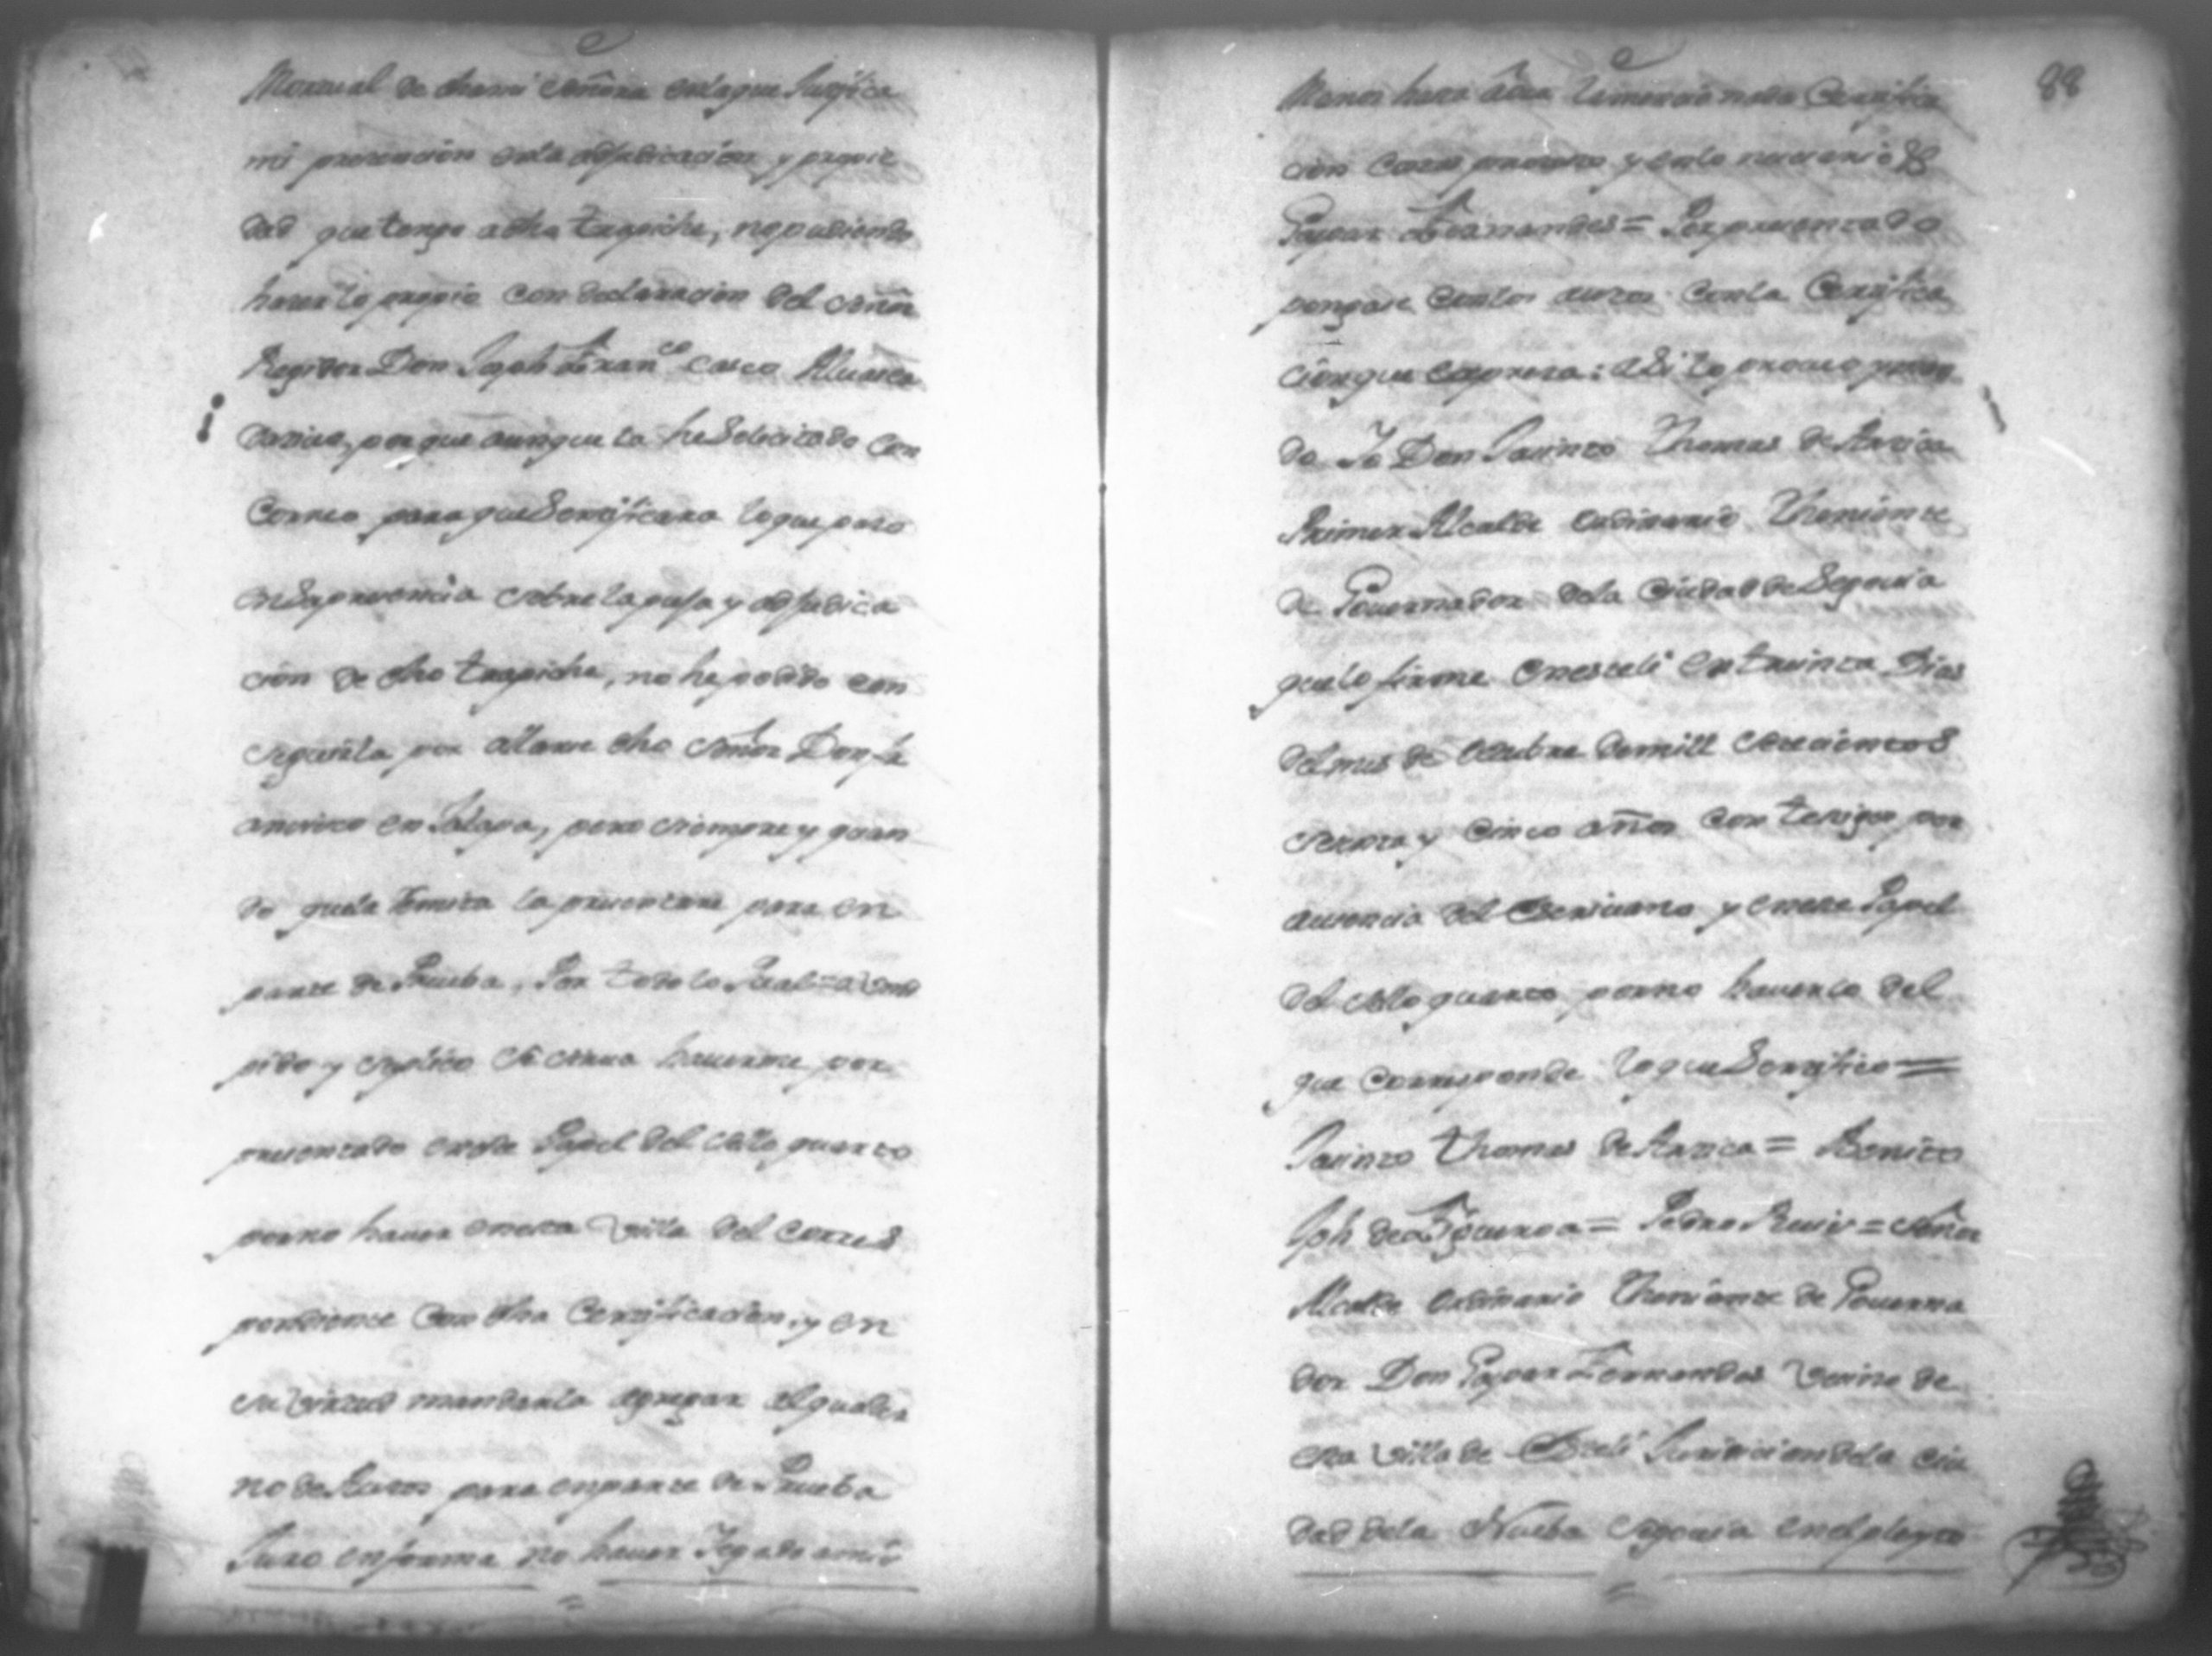 de dha mi señora enlaque Justifica
mi precencion enla adjudicacion y propie
dad que tengo a dho trapiche, no pudiendo
hacer lo propio con declaracion del señor
Regidor Don Joseph Franco Casco
porque aunque la he Solicitado con
Correo para que Sertificara loque paso
en Su precencia sobre la puja y adjudica
cion de dho trapiche, no he podido con
seguirla por allarse dho señor Don fr
ancisco en Jalapa, pero siempre y quan
do que la remita la precentare para en
parte de Prueba, Por todo lo Qual = a Vmd
pido y suplico se sirva haverme por
precentado en este Papel del sello quarto
por no haver en esta villa del corres
pondiente Con dha Certificacion, y en
su virtud mandarla agregar al quader
no de Autos para en parte de Prueba
Juro en forma no haver
88
Certifica
cion Costas protesto y en lo necesario &
Gaspar Fernandes = Por precentado
pongase con los autos con la Certifica
cion que expresa: asi lo proveo y man
do Yo Don Jacinto Thomas de
Primer Alcalde ordinario Theniente
de Governador dela Ciudad de Segovia
que lo firme en esteli en treinta Dias
del mes de Octubre de mill setecientos
setenta y Cinco años con testigos por
ausencia del Escrivano y en este Papel
del sello quarto por no haverlo del
que Corresponde loque Sertifico =
Jacinto Thomas de = Benito
Jph de Figueroa = Pedro Ruiz = Señor
Alcalde ordinario Theniente de Governa
dor Don Gaspar Fernandes vecino de
esta villa de Esteli Juridicion dela ciu
dad dela Nueba Segovia en el pleyto